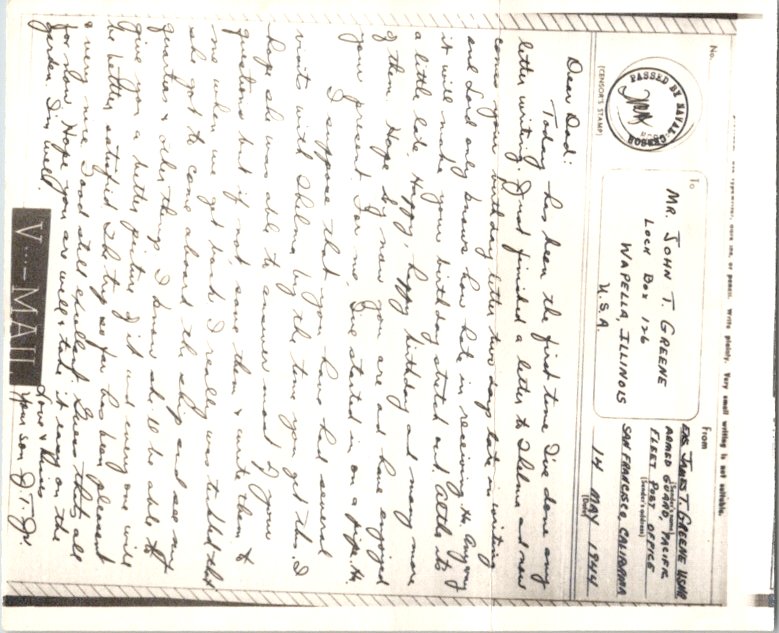 No.
PASSED BY NAVAL CENSOR
(CENSOR'S STAMP)
To
MR. JOHN T. GREENE
LOCK BOX 126
WAPELLA, ILLINOIS
U.S.A.
Write plainly. Very small writing is not suitable.
From
JAMES T. GREENE USNR
(Sender's name)
ARMED GUARD, PACIFIC
(Sender's address)
FLEET POST OFFICE
SAN FRANCISCO, CALIFORNIA
14 MAY 1944
(Date)
Dear Dad:
Today has been the first time I've done any
letter writing. Just finished a letter to Thelma and now
comes your birthday letter two days late in writing
and Lord only knows how late in receiving. Anyway
it will make your birthday stretch out a little to
a little late. Happy, happy birthday and many more
of them. Hope by now you are and have enjoyed
your present. For me, I've started in on a pipe
I suppose that you have had several
visits with Thelma by the time you get this. I
hope she was able to answer most of your
questions but if not, save them & write them to
me when we get back. I really was tickled that
she got to come aboard the ship and see my
quarters & other things. I know she'll be able to
give you a better picture of it and every one will
be better satisfied. The trip so far has been pleasant
& very nice. Food still excellent. Guess that's all
for now. Hope you are well & take it easy on the
garden. I'm well.
Love &
Your son J.T. Jr.
V···—MAIL